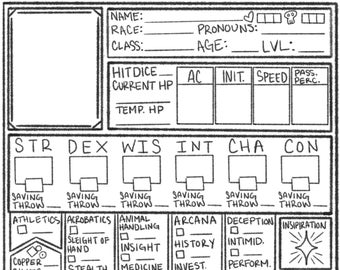 NAME:
RACE: PRONOUNS:
CLASS: AGE: LVL:
HIT DICE
CURRENT HP
TEMP. HP
AC INIT. SPEED PASS. PERC.
STR DEX WIS INT CHA CON
SAVING THROW SAVING THROW SAVING THROW SAVING THROW SAVING THROW SAVING THROW
ATHLETICS
COPPER
ACROBATICS
SLEIGHT OF HAND
STEALTH
ANIMAL HANDLING
INSIGHT
MEDICINE
ARCANA
HISTORY
INVEST.
DECEPTION
INTIMID.
PERFORM.
INSPIRATION